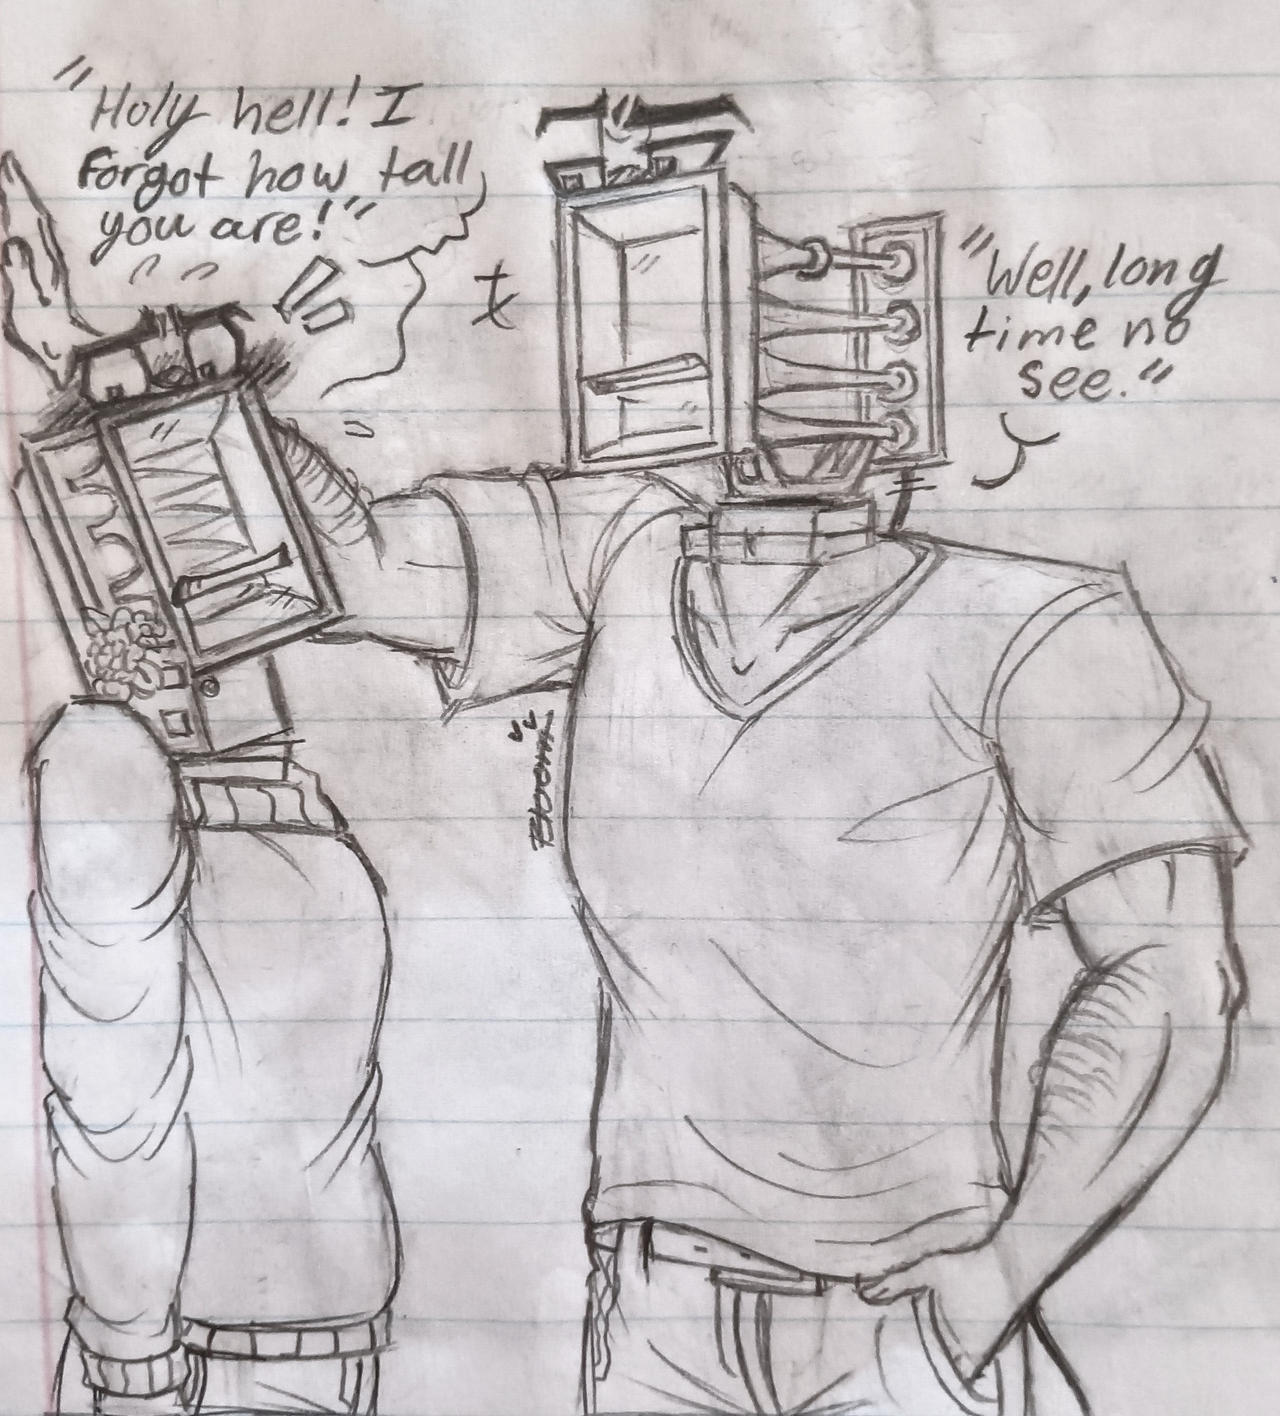 "Holy hell! I
Forgot how tall
you are!"
"Well, long
time no
see."